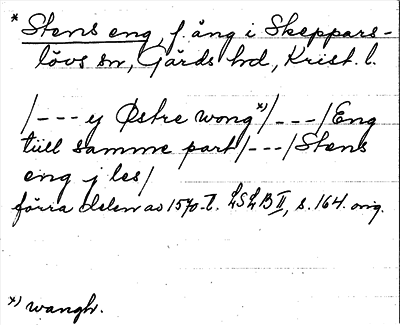 * Stens eng, f. äng i Skeppars-
lövs sn, Gärds hd, Krist. l.
/--- y Østre wong *)/---/Eng
tiill samme part/---/Stens
eng j les/
förra delen av 1570-t. LSLB II, s. 164. orig.
*) wangh.